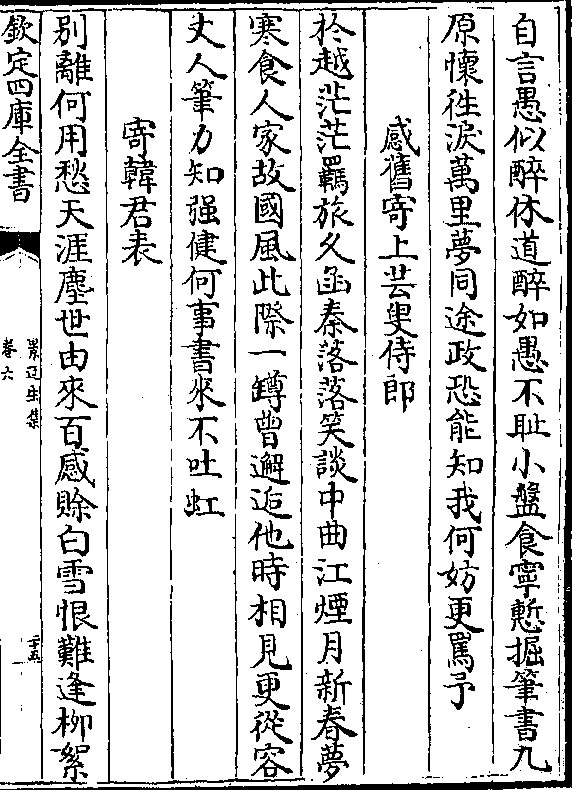 自言愚似醉休道醉如愚不耻小盤食寧慙掘筆書九
原懷徃淚萬里夢同途政恐能知我何妨更罵予
感舊寄上芸叟侍郎
於越茫茫羈旅久函秦落落笑談中曲江煙月新春夢
寒食人家故國風此際一罇曾邂逅他時相見更從容
丈人筆力知强健何事書來不吐虹
寄韓君表
別離何用愁天涯塵世由來百感賒白雪恨難逢柳絮
欽定四庫全書
景迂生集
卷六
二十五